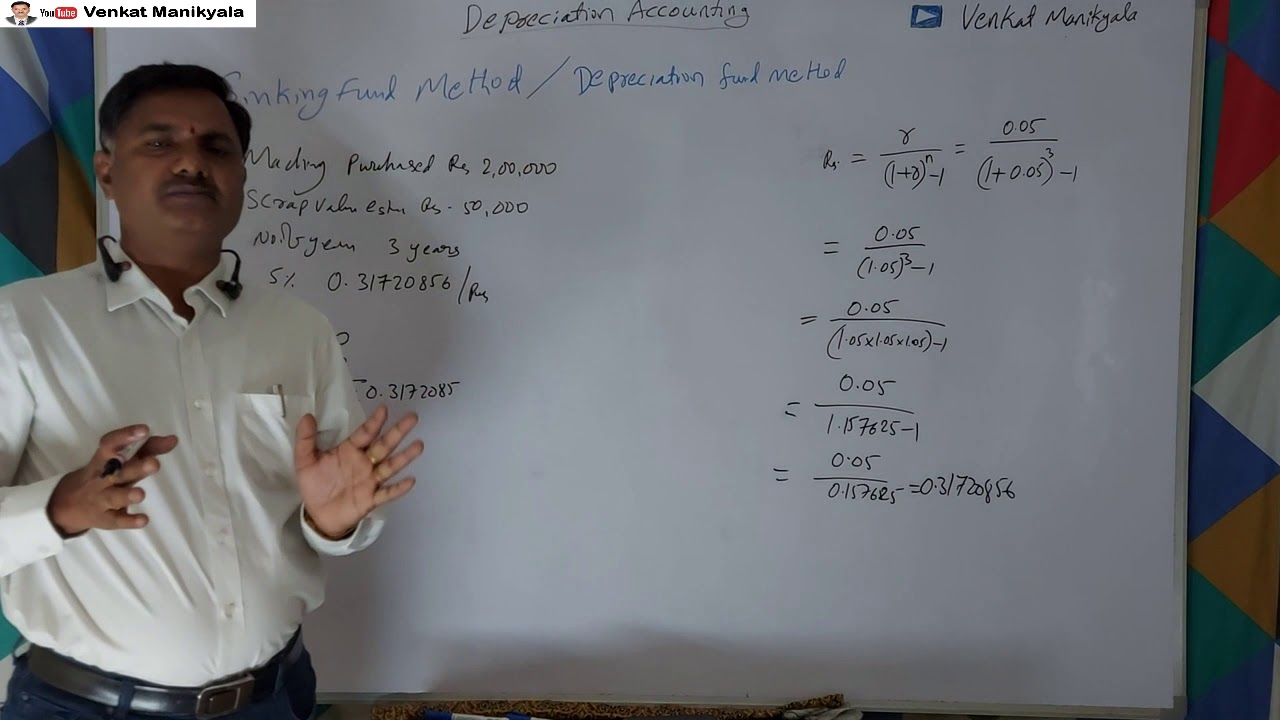 YouTube Venkat Manikyala
Depreciation Accounting
Venkat Manikyala
Sinking Fund Method / Depreciation fund method
Purchased Rs 2,00,000
Scrap Value Rs. 50,000
3 years
5% 0.31720856/Rs
= 0.3172085
Rs. = r/((1+r)^n-1) = 0.05/((1+0.05)^3-1)
= 0.05/((1.05)^3-1)
= 0.05/((1.05x1.05x1.05)-1)
= 0.05/(1.157625-1)
= 0.05/0.157625 = 0.31720856